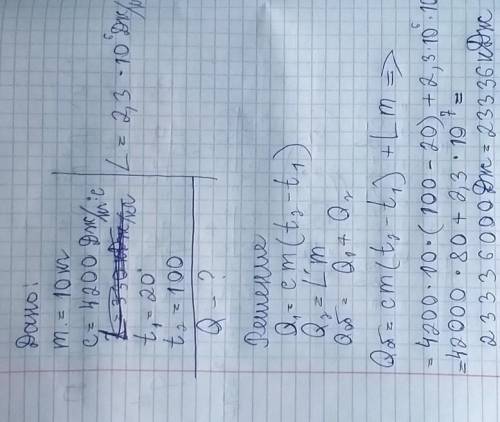 Дано:
m = 10 кг
c = 4200 Дж/кг°с
L = 2,3 · 10⁶ Дж/кг
t₁ = 20°
t₂ = 100
Q – ?
Решение
Q₁ = cm(t₂ - t₁)
Q₂ = L m
Qоб = Q₁ + Q₂
Qоб = cm(t₂ - t₁) + L m =>
= 4200 · 10 · (100 - 20) + 2,3 · 10⁶ · 10
= 42000 · 80 + 2,3 · 10⁷ =
2 3 3 3 6 000 Дж = 233 36 кДж